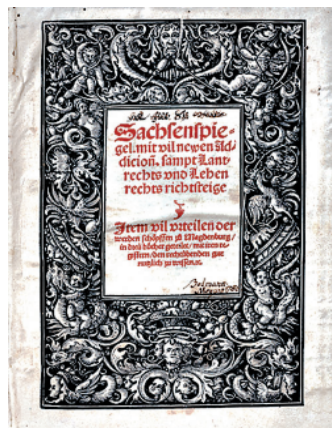 Sachsenspie-
gel. mit vil newen Ad-
dicion̄. sampt Lant-
rechts vnd Lehen
rechts richtsteige
Item vil vrteilen der
werden schöpffen zů Magdenburg/
in dreü bücher geteilet/ mit iren re-
gistern/ den rechtlibenden gar
nutzlich zu wissen.